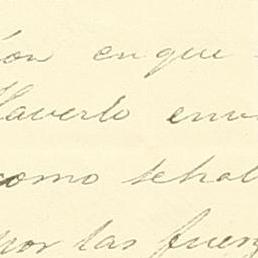 ón en que
Haverlo envi
como se hal
por las fuerz